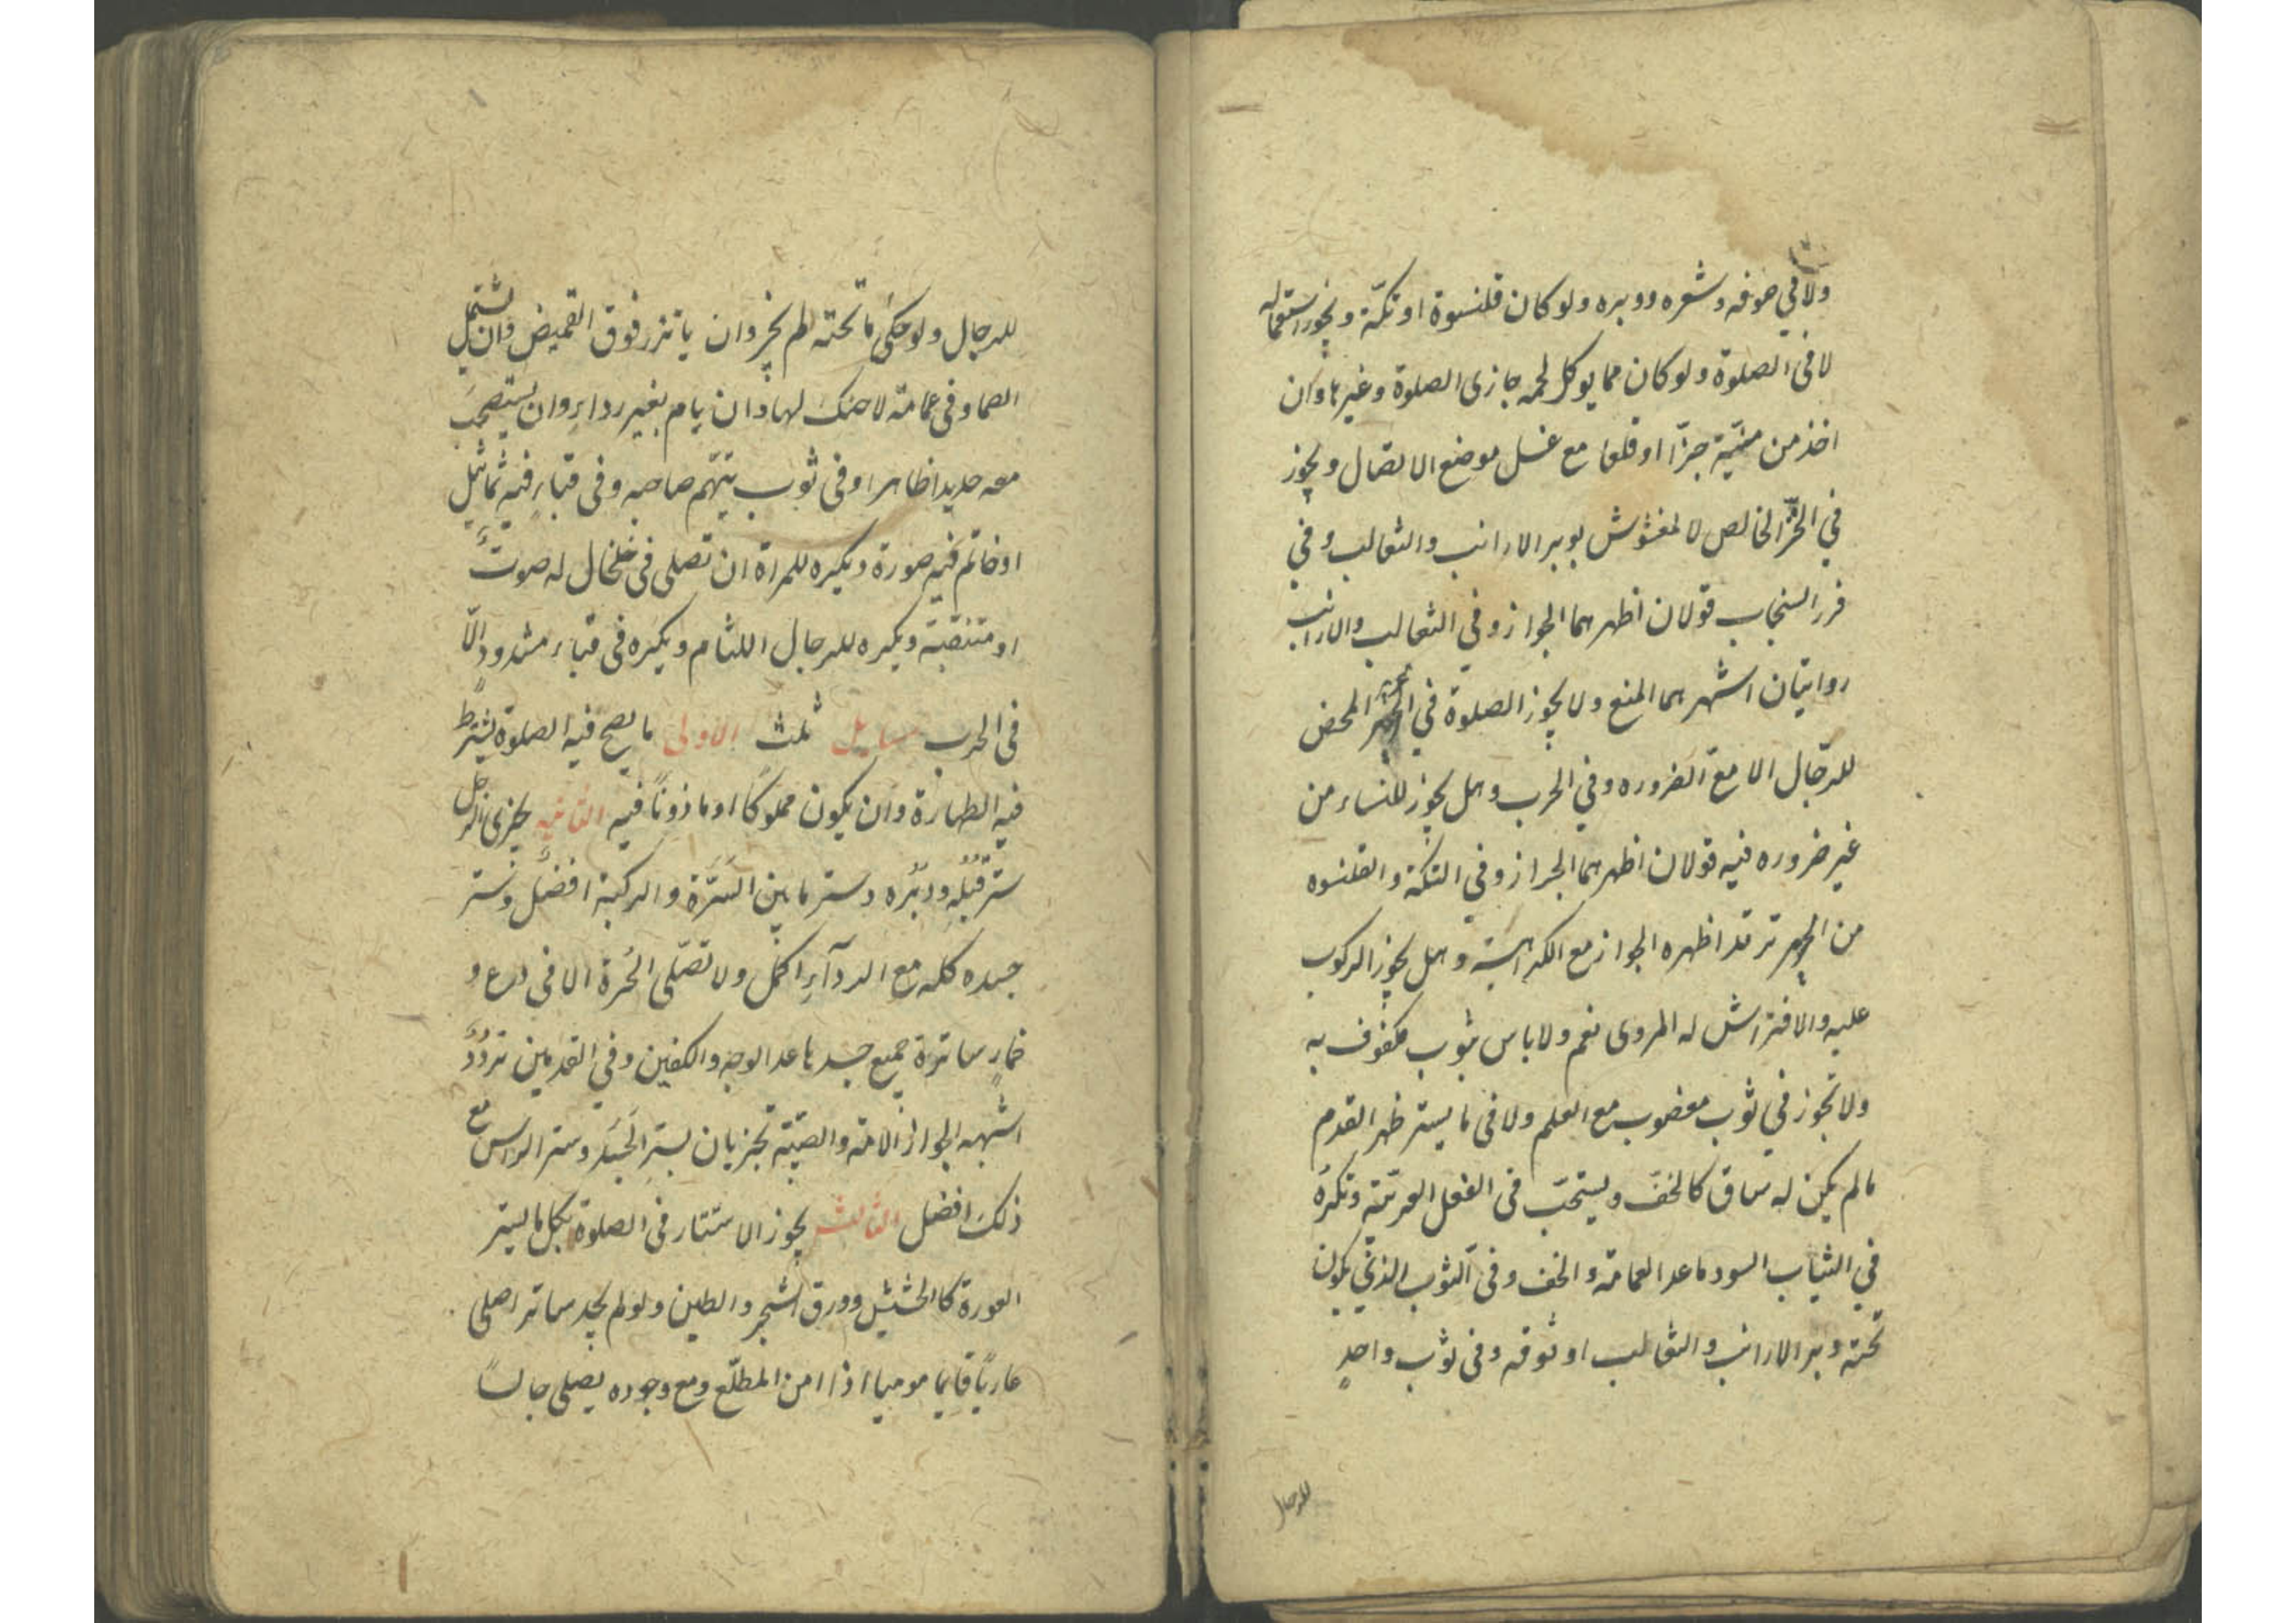 ولا في صوفه وشعره ووبره ولو كان قلنسوة او تكّة ويجوز استعماله
لا فى الصلوة ولو كان مما يوكل لحمه جاز فى الصلوة وغيرها وان
اخذ من ميّتة جزّا او قلعا مع غسل موضع الاتصال ويجوز
في الخزّ الخالص لا المغشوش بوبر الارانب والثعالب وفي
فرو السنجاب قولان اظهرهما الجواز وفي الثعالب والارانب
روايتان اشهرهما المنع ولا يجوز الصلوة في الحرير المحض
للرّجال الا مع الضروره وفي الحرب وهل يجوز للنساء من
غير ضروره فيه قولان اظهرهما الجواز وفي التكّة والقلنسوه
من الحرير تردد اظهره الجواز مع الكراهية وهل يجوز الركوب
عليه والافتراش له المروى نعم ولا باس بثوب مكفوف به
ولا تجوز في ثوب مغصوب مع العلم ولا فى ما يستر ظهر القدم
مالم يكن له ساق كالخفّ ويستحبّ فى النعل العربيّة وتكره
في الثياب السود ما عدا العمامة والخف وفى الثوب الذي يكون
تحته وبر الارانب والثعالب او فوقه وفى ثوب واحدٍ
للرجال
للرجال ولو حكى ما تحته لم يجز وان ياتزر فوق القميص وان يشتمل
الصما وفى عمامة لا حنك لها وان يام بغير رداءٍ وان يستصحب
معه حديدا ظاهرا وفى ثوب يتّهم صاحبه وفى قباءٍ فيه تماثيل
او خاتم فيه صورة ويكره للمراة ان تصلى فى خلخال له صوتٌ
او متنقبة ويكره للرجال اللثام ويكره فى قباء مشدودٍ الّا
فى الحرب مسايل ثلث الاولى ما يصح فيه الصلوة يشترط
فيه الطهارة وان يكون مملوكًا او ماذونًا فيه الثانيه يجزى الرجل
ستر قبُله ودبُره وستر ما بين السّرّة والركبة افضل وستر
جسده كله مع الردآءِ اكمل ولا تصلّى الحُرة الا فى درع و
خمارٍ ساترة جميع جسدها عدا الوجه والكفين وفي القدمين تردّدٌ
اشبهه الجواز والامة والصبيّة تجزيان بستر الجَسَد وستر الراس مع
ذلكَ افضل الثالثه يجوز الاستتار فى الصلوة بكل ما يستر
العورة كالحشيش وورق الشجر والطين ولو لم يجد ساترا صلى
عاريًا قايما موميا اذا امن المطلّع ومع وجوده يصلى جالسًا